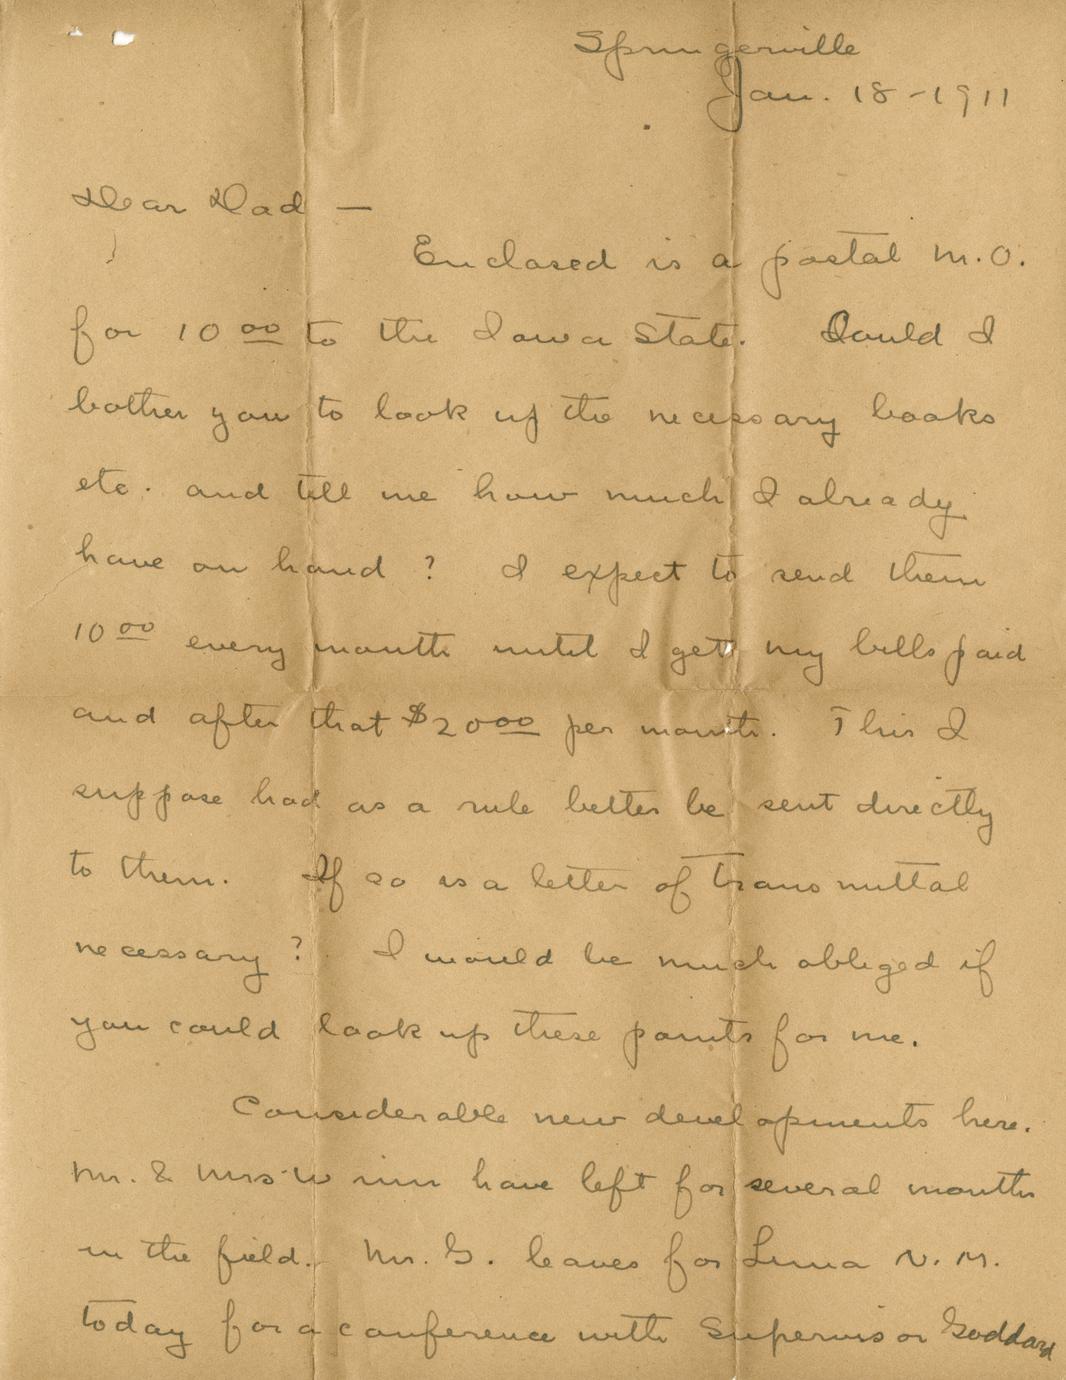 Springerville
Jan. 18-1911
Dear Dad —
Enclosed is a postal M.O.
for 10 00 to the Iowa State. Could I
bother you to look up the necessary books
etc. and tell me how much I already
have on hand? I expect to send them
10 00 every month until I get my bills paid
and after that $20 00 per month. This I
suppose had as a rule better be sent directly
to them. If so is a letter of transmittal
necessary? I would be much obliged if
you could look up these points for me.
Considerable new developments here.
Mr. & Mrs Winn have left for several months
in the field. Mr. G. leaves for Luna N.M.
today for a conference with Supervisor Goddard